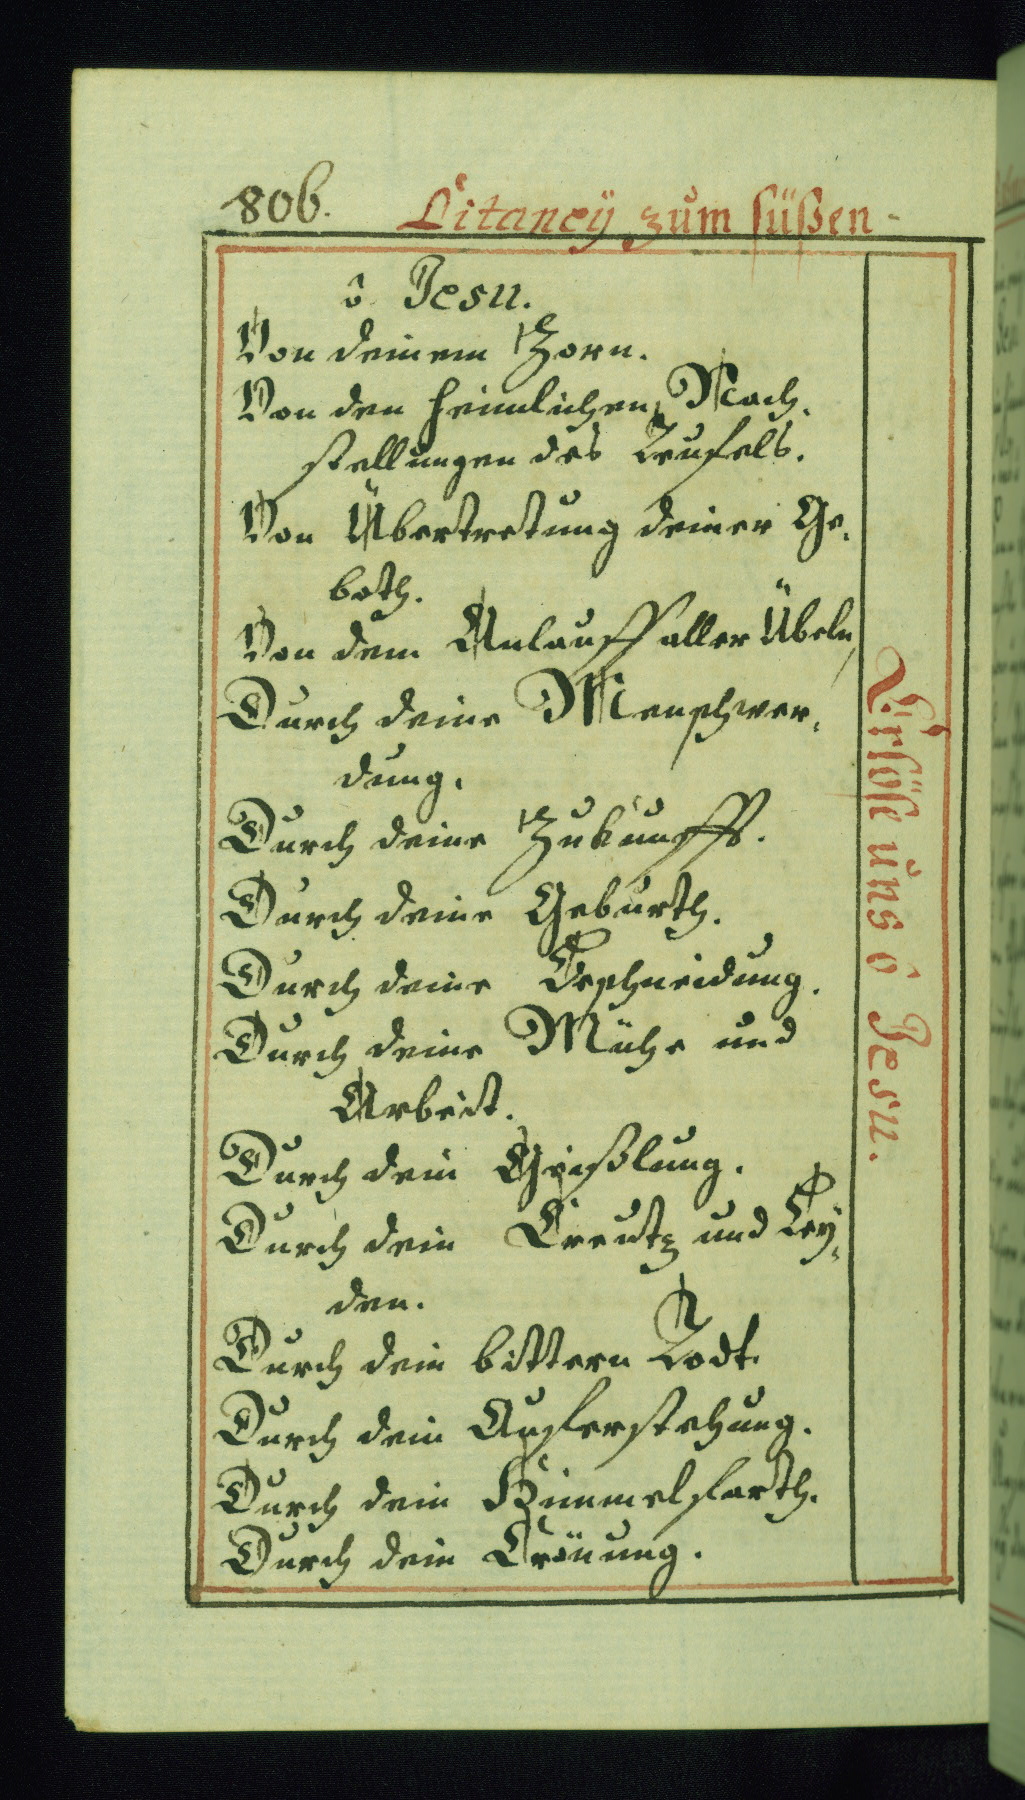 806.
Litaney zum süßen
ô Jesu.
Von deinem Zorn.
Von den heimlichen Nach,
stellungen des Teufels.
Von Übertretung deiner Ge,
both.
Von dem Anlauff aller Übeln
Durch deine Menschwer,
dung.
Durch deine Zukunfft.
Durch deine Geburth.
Durch deine Beschneidung.
Durch deine Mühe und
Arbeit.
Durch dein Geißlung.
Durch dein Creutz und Ley,
den.
Durch dein bittern Todt.
Durch dein Auferstehung.
Durch dein Himmelfarth.
Durch dein Crönung.
Erlöse uns ô Jesu.